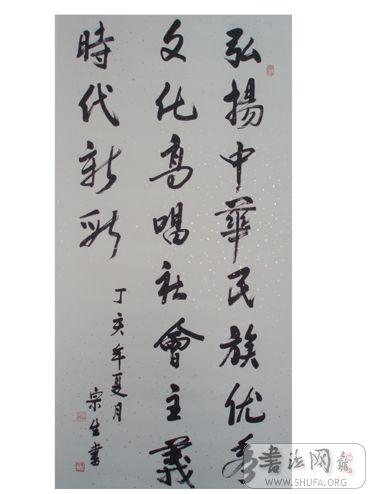 弘揚中華民族优秀
文化高唱社會主義
時代新歌
丁亥年夏月
宗生書
书法网
WWW.SHUFA.ORG